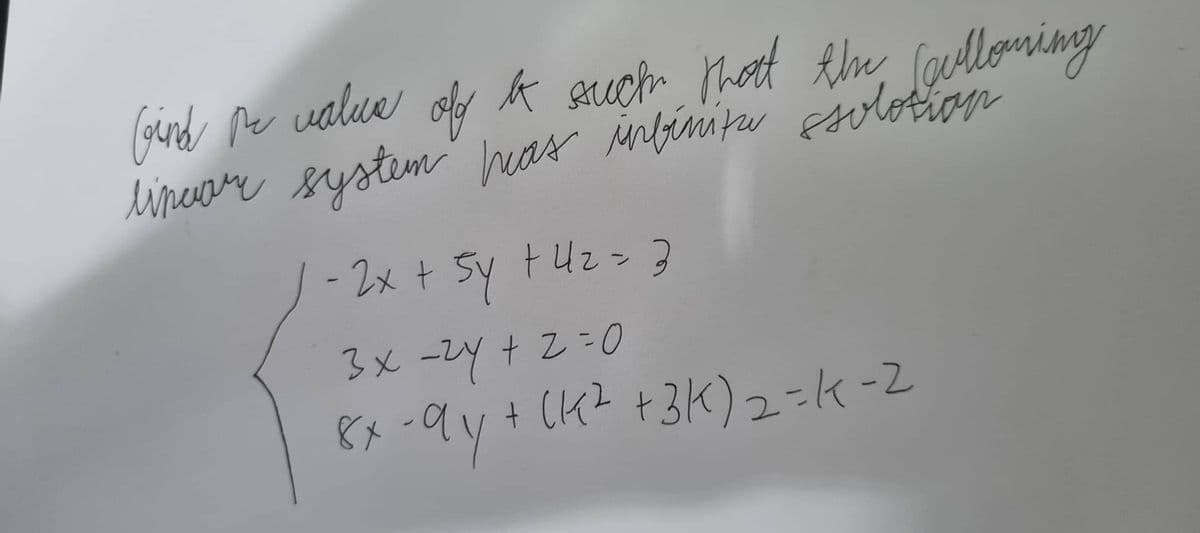 find the value of k such that the following
linear system has infinite solution
-2x + 5y + 4z = 3
3x - 2y + z = 0
8x - 9y + (k² + 3k) z = k - 2